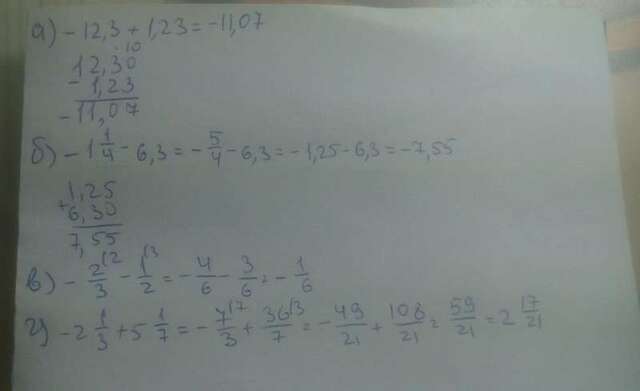 а) - 12,3 + 1,23 = -11,07
10
12,30
- 1,23
-11,07
б) - 1 1/4 - 6,3 = - 5/4 - 6,3 = - 1,25 - 6,3 = - 7,55
1,25
+ 6,30
7,55
в) - 2/3 |2 - 1/2 |3 = - 4/6 - 3/6 = - 1/6
г) - 2 1/3 + 5 1/7 = - 7/3 |7 + 36/7 |3 = - 49/21 + 108/21 = 59/21 = 2 17/21